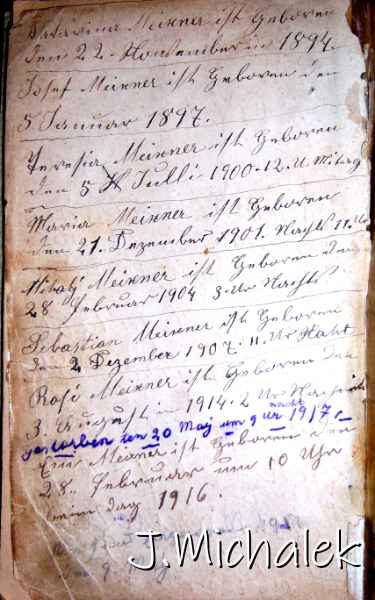 Katarina Meixner ist Geboren
den 22. November in 1894.
Josef Meixner ist Geboren den
5 Januar 1897.
Teresia Meixner ist Geboren
den 5 Julli 1900-12. U Mitag
Maria Meixner ist Geboren
den 21. Dezember 1901. Nachts 11. Ur
Mihalÿ Meixner ist Geboren den
28 Februar 1904 3. Ur Nachts
Sebastian Meixner ist Geboren
den 2 Dezember 1907. 11. Ur Naht
Rosi Meixner ist Geboren den
3. August in 1914. 2 Ur
gestorben am 20 Maÿ um 9 ur nacht 1917
Meixner ist Geboren den
28. Februar um 10 Uhr
beim dag 1916.
J.Michalek